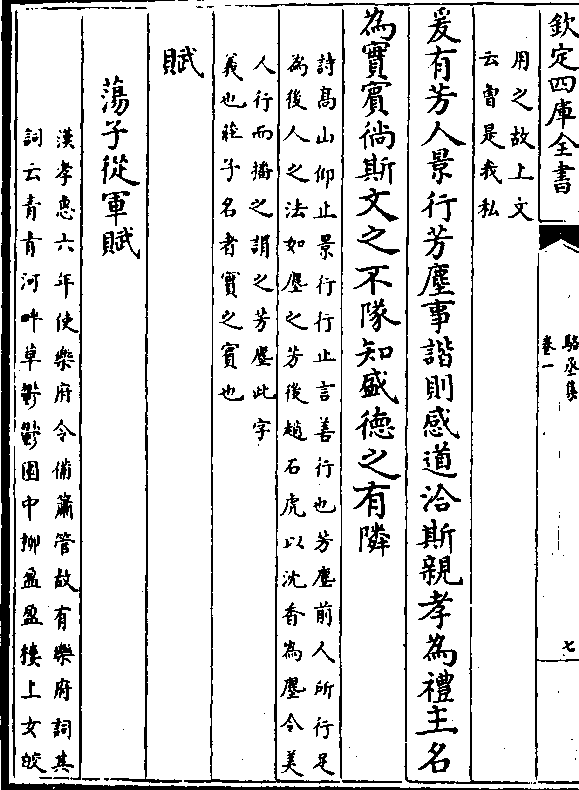 欽定四庫全書
駱丞集
卷一
七
用之故上文
云曾是我私
爰有芳人景行芳塵事諧則感道洽斯親孝為禮主名
為實賓徜斯文之不隊知盛德之有隣
詩髙山仰止景行行止言善行也芳塵前人所行足
為後人之法如塵之芳後趙石虎以沈香為塵令美
人行而播之謂之芳塵此字
義也莊子名者實之賓也
賦
蕩子從軍賦
漢孝惠六年使樂府令備簫管故有樂府詞其
詞云青青河畔草鬱鬱園中柳盈盈樓上女皎